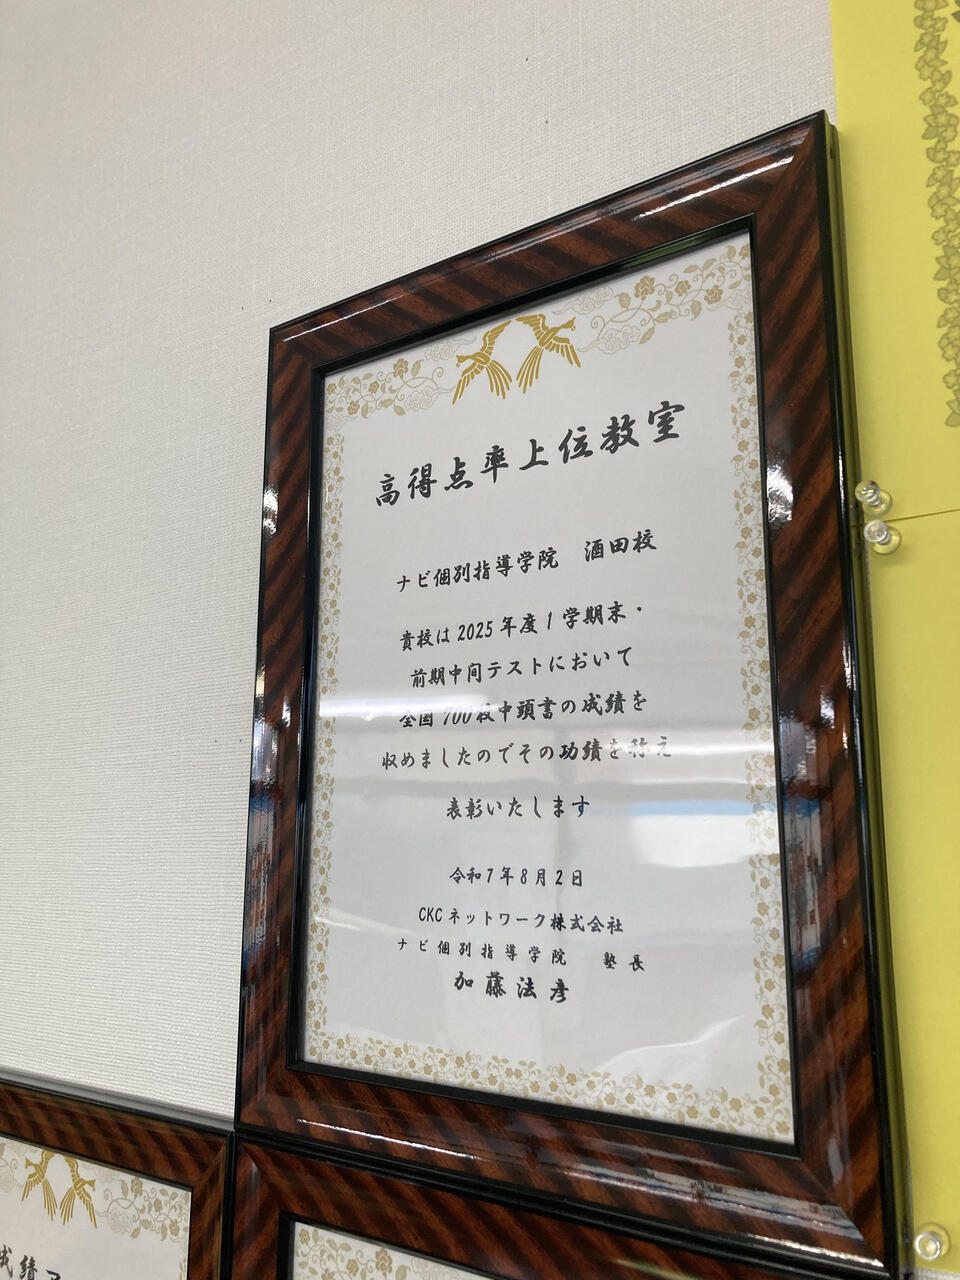 高得点率上位教室
ナビ個別指導学院 酒田校
貴校は2025年度1学期末・
前期中間テストにおいて
全国700校中頭書の成績を
収めましたのでその功績を称え
表彰いたします
令和7年8月2日
CKCネットワーク株式会社
ナビ個別指導学院 塾長
加藤法彦
成績